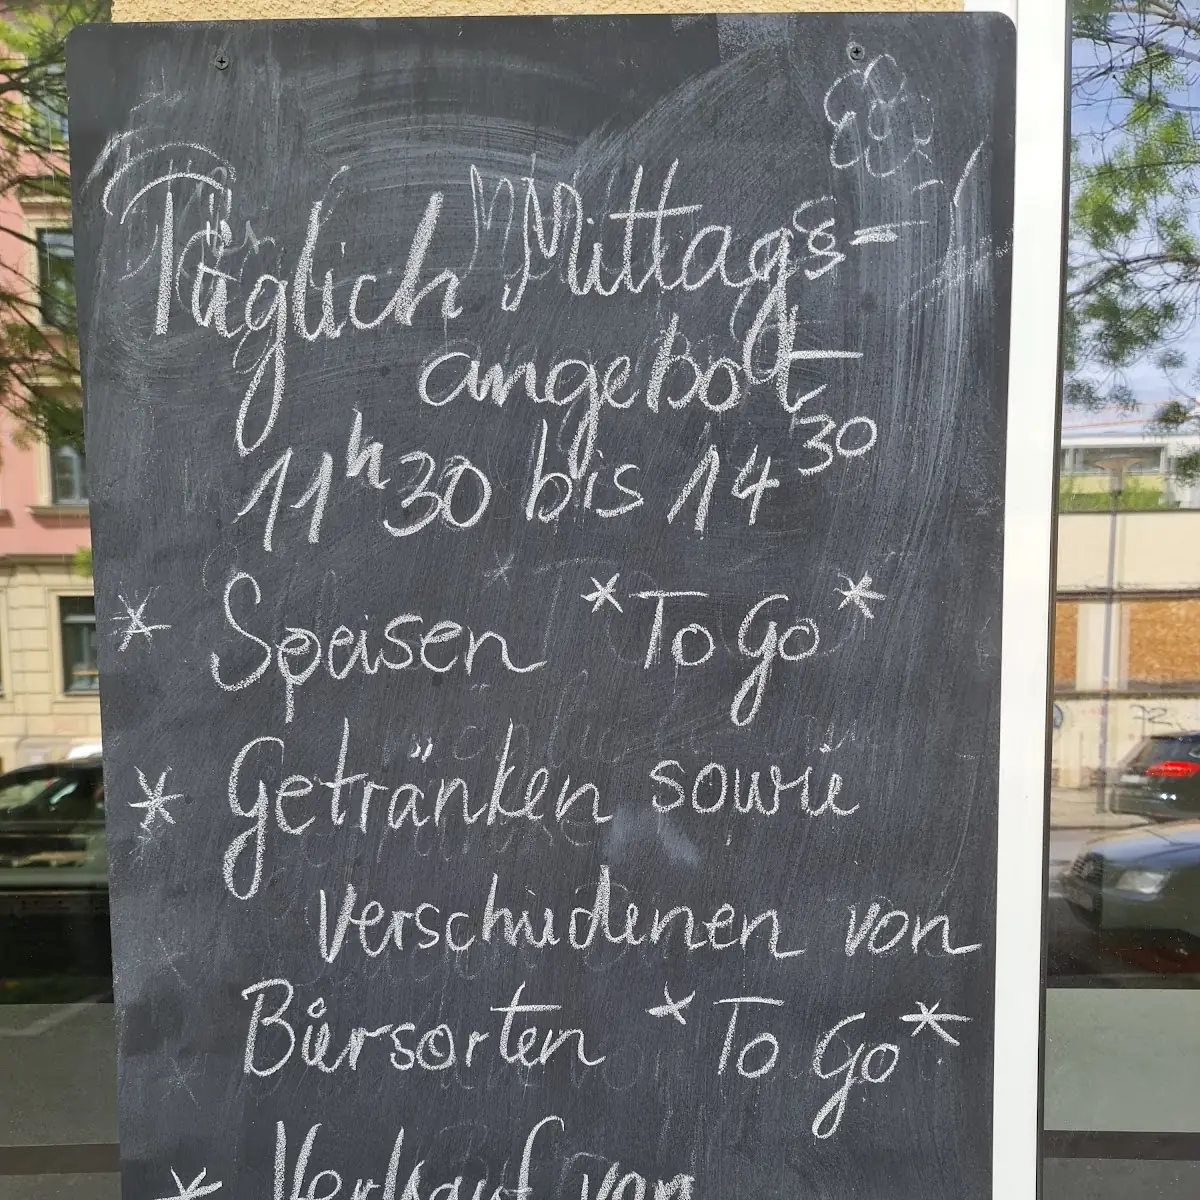 Täglich Mittags-
angebot
11h30 bis 14 30
* Speisen *To Go*
* Getränken sowie
verschiedenen von
Biersorten *To Go*
* Verkauf von